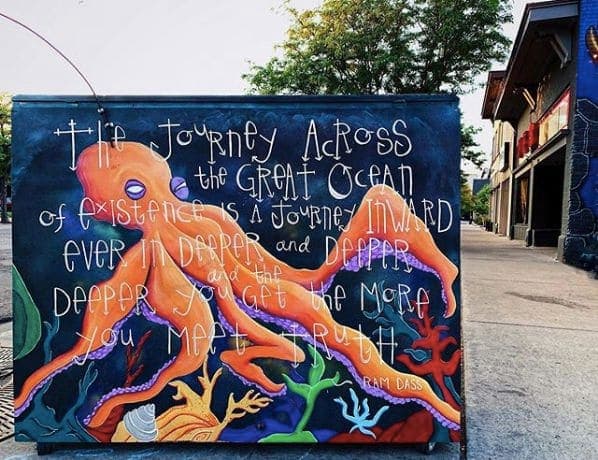 the JouRNey AcRoSS
the GREAT OceAN
of exIStence IS A JouRNey INWARD
eveR IN DeePeR and DeePeR
and the
DeePeR you Get the MoRe
you Meet tRutH
RAM DASS